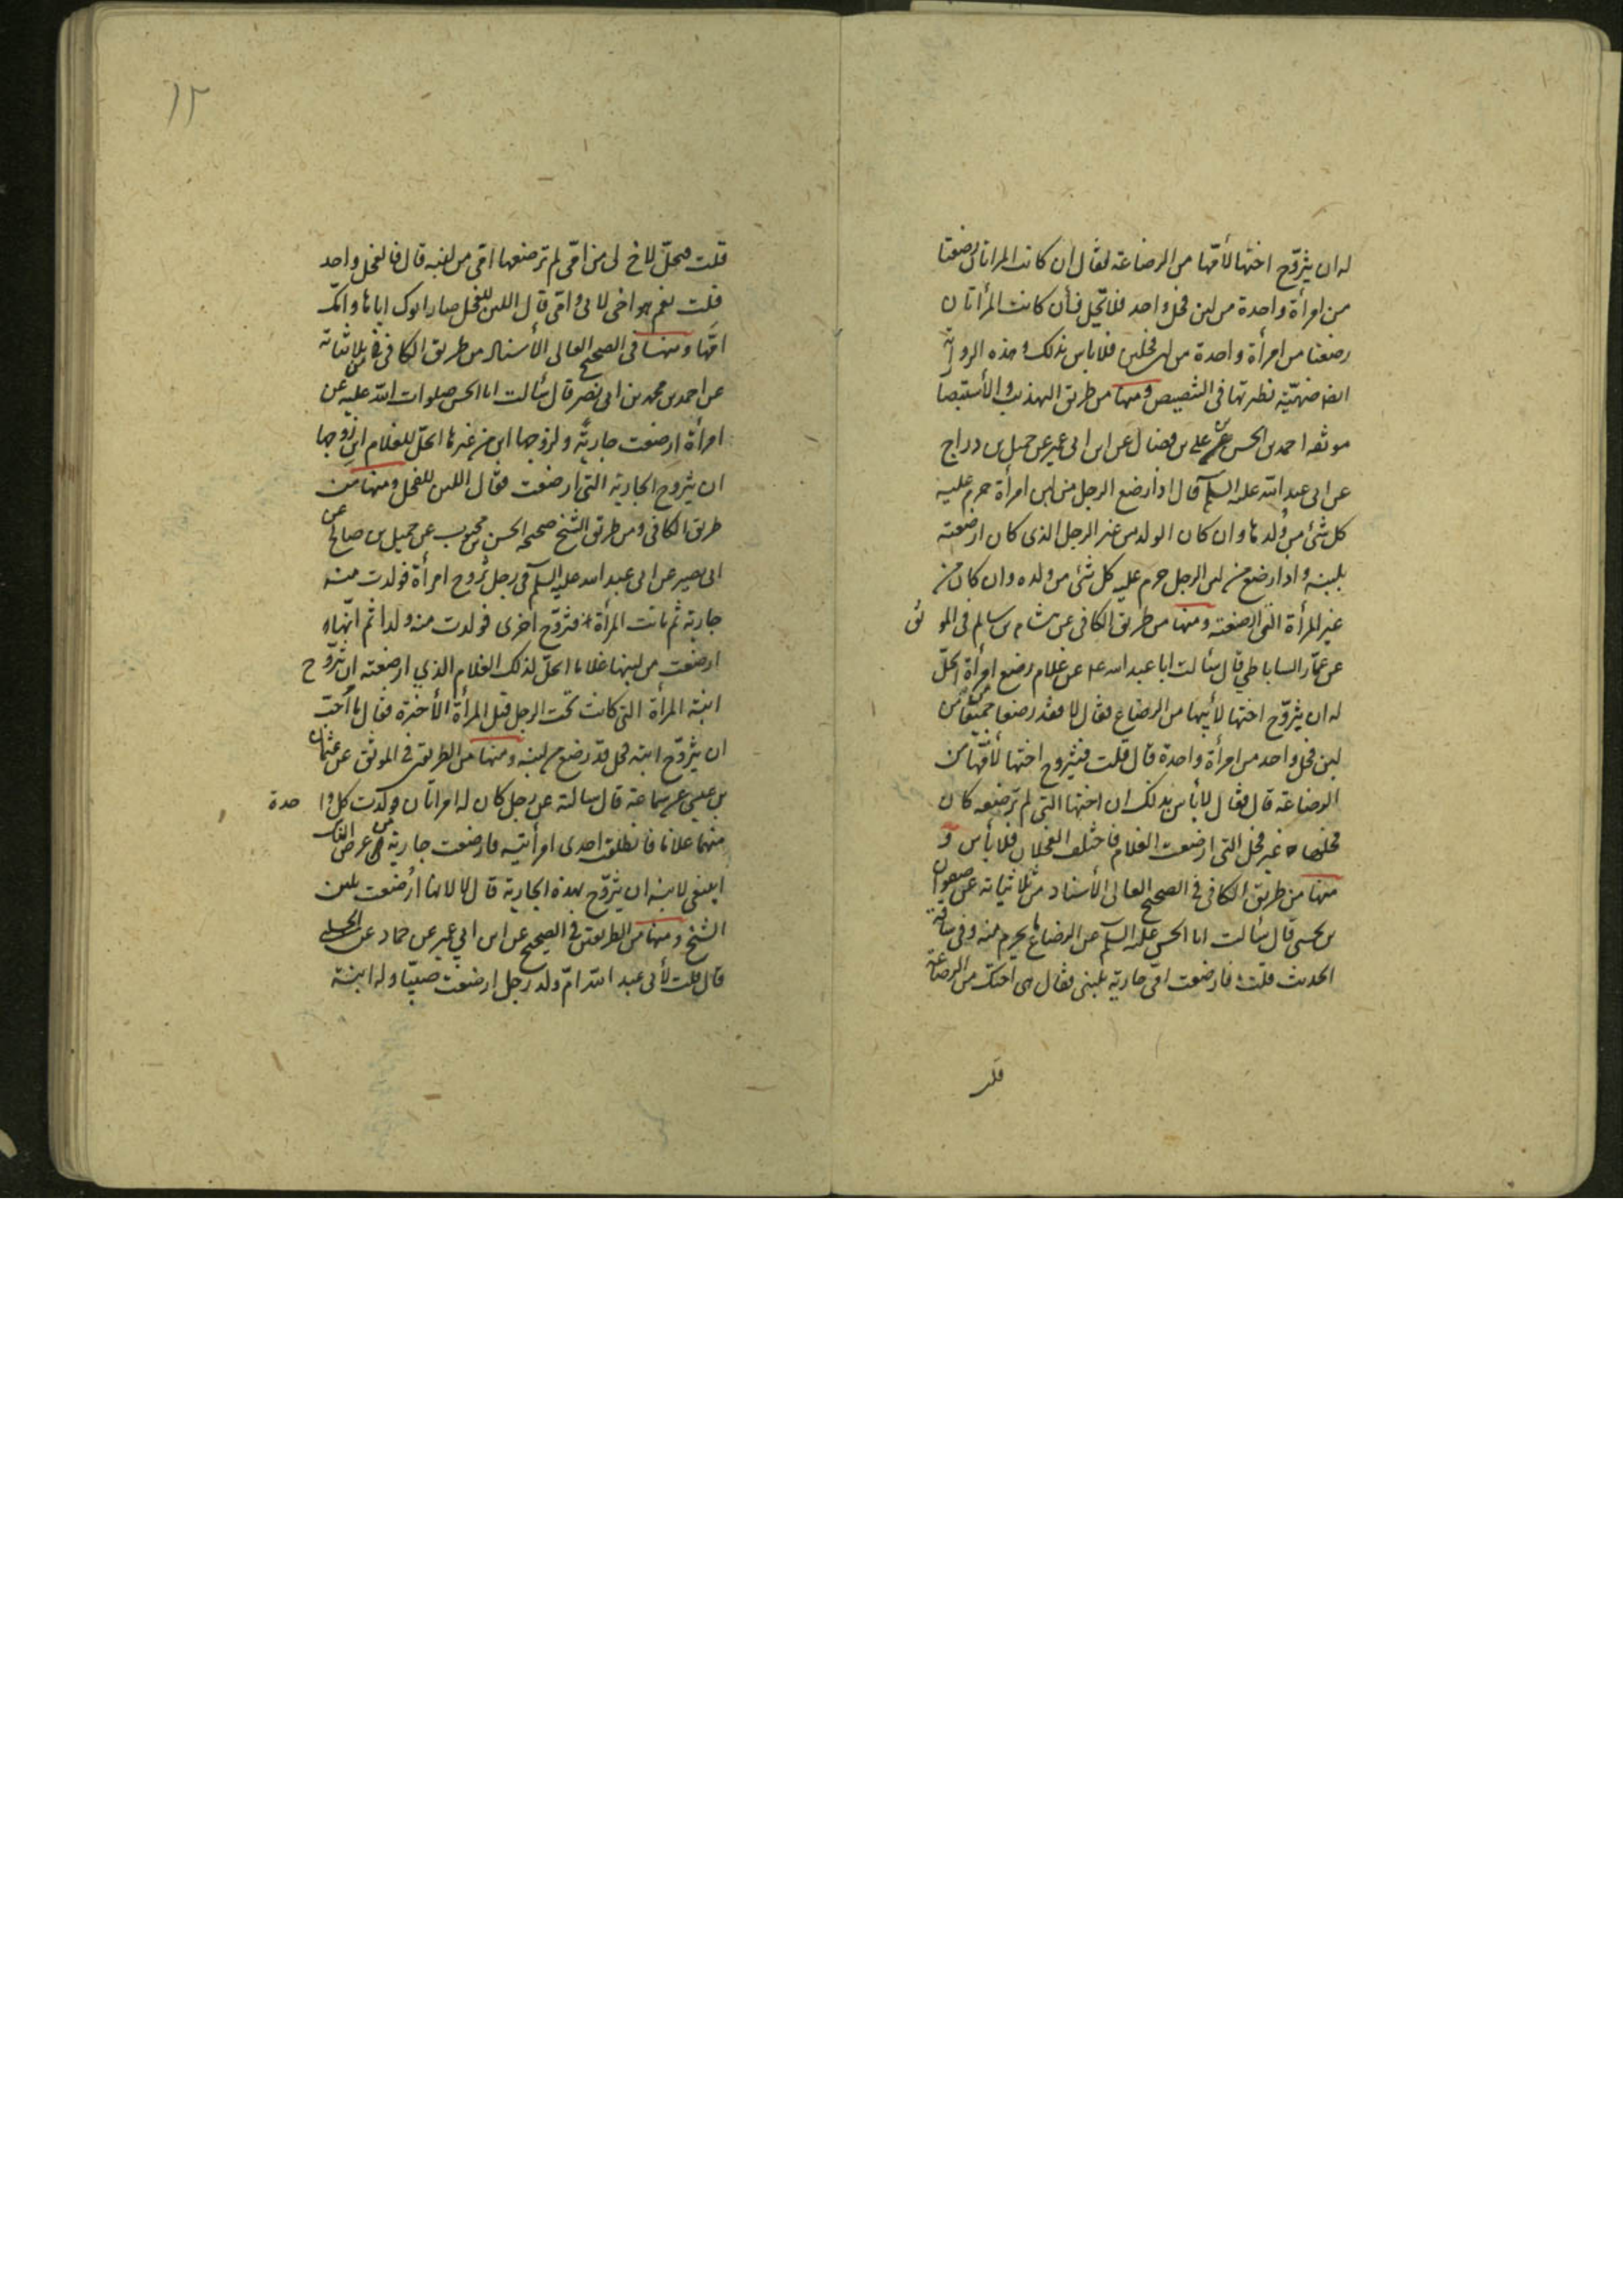 له ان يتزوّج اختها لأمّها من الرضاعة فقال ان كانت المراتان رضعتا
من امرأة واحدة من لبن فحل واحد فلا تحل فأن كانت المرأتان
رضعتا من امرأة واحدة من لبن فحلين فلا باس بذلك وهذه الرواية
ايضا نظيرتها في التنصيص ومنها من طريق التهذيب والأستبصا
موثقه احمد بن الحسن بن علي بن فضال عن ابن ابى عمير عن جميل بن دراج
عن ابى عبد الله عليه السلم قال اذا رضع الرجل من لبن امرأة حرم عليه
كل شئ من ولدها وان كان الولد من غير الرجل الذى كان ارضعته
بلبنه واذا رضع من لبن الرجل حرم عليه كل شئ من ولده وان كان من
غير المرأة التى ارضعته ومنها من طريق الكافى عن هشام بن سالم فى الموثق
عن عمّار الساباطي قال سألت ابا عبد الله عن غلام رضع من امرأة ايحلّ
له ان يتزوّج اختها لأبيها من الرضاع فقال لا فقد رضعا جميعا من
لبن فحل واحد من امرأة واحدة قال قلت فيتزوج اختها لأمّها من
الرضاعة قال فقال لا بأس بذلك ان اختها التى لم ترضعه كان
فحلها غير فحل التى ارضعت الغلام فاختلف الفحلان فلا بأس و
منها من طريق الكافى فى الصحيح العالى الأسناد من ثلاثياته عن صفوان
بن يحيى قال سألت ابا الحسن عليه السلم عن الرضاع ما يحرم منه وفى ساقة
الحديث قلت فارضعت امّى جارية بلبنى فقال هى اختك من الرضاعة
قلت
١٢
قلت فتحلّ لاخ لى من امّى لم ترضعها امّى من لبنه قال فالفحل واحد
قلت نعم هو اخى لابى وامّى قال اللبن للفحل صار ابوك اباها وامّك
امّها ومنها فى الصحيح العالى الأسناد من طريق الكافى فى ثلاثياته
عن احمد بن محمد بن ابى نصر قال سألت ابا الحسن صلوات الله عليه عن
امرأة ارضعت جارية ولزوجها ابن من غيرها ايحلّ للغلام ابن زوجها
ان يتزوج الجارية التى ارضعت فقال اللبن للفحل ومنها من
طريق الكافى ومن طريق الشيخ صحيحه الحسن بن محبوب عن جميل بن صالح عن
ابى بصير عن ابى عبد الله عليه السلم فى رجل تزوج امرأة فولدت منه
جارية ثم ماتت المرأة فتزوّج اخرى فولدت منه ولدا ثم انّها
ارضعت من لبنها غلاما ايحلّ لذلك الغلام الذي ارضعته ان يتزوّج
ابنة المرأة التى كانت تحت الرجل قبل المرأة الأخيرة فقال ما احبّ
ان يتزوّج ابنة فحل قد رضع من لبنه ومنها من الطريقين فى الموثق عن عثمان
بن عيسى عن سماعة قال سالته عن رجل كان له امراتان فولدت كل واحدة
منهما غلاما فانطلقت احدى امرأتيه فارضعت جارية من عرض الناس
اينبغى لابنه ان يتزوّج بهذه الجارية قال لا لانها ارضعت بلبن
الشيخ ومنها من الطريقين فى الصحيح عن ابن ابي عمير عن حماد عن الحلبى
قال قلت لأبى عبد الله امّ ولد رجل ارضعت صبيّا وله ابنة